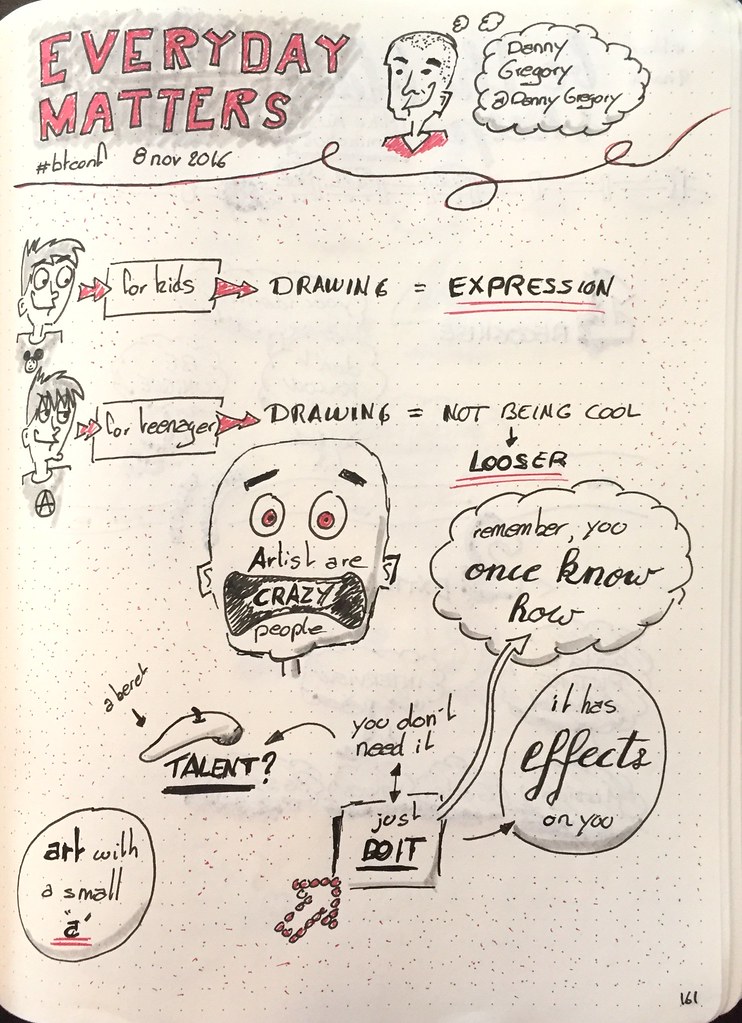 EVERYDAY
MATTERS
Danny
Gregory
@Danny Gregory
#btconf 8 nov 2016
for kids
DRAWING = EXPRESSION
for teenager
DRAWING = NOT BEING COOL
LOOSER
A
Artist are
CRAZY
people
remember, you
once know
how
a beret
TALENT?
you don't
need it
it has
effects
on you
just
DO IT
art with
a small
"a"
161